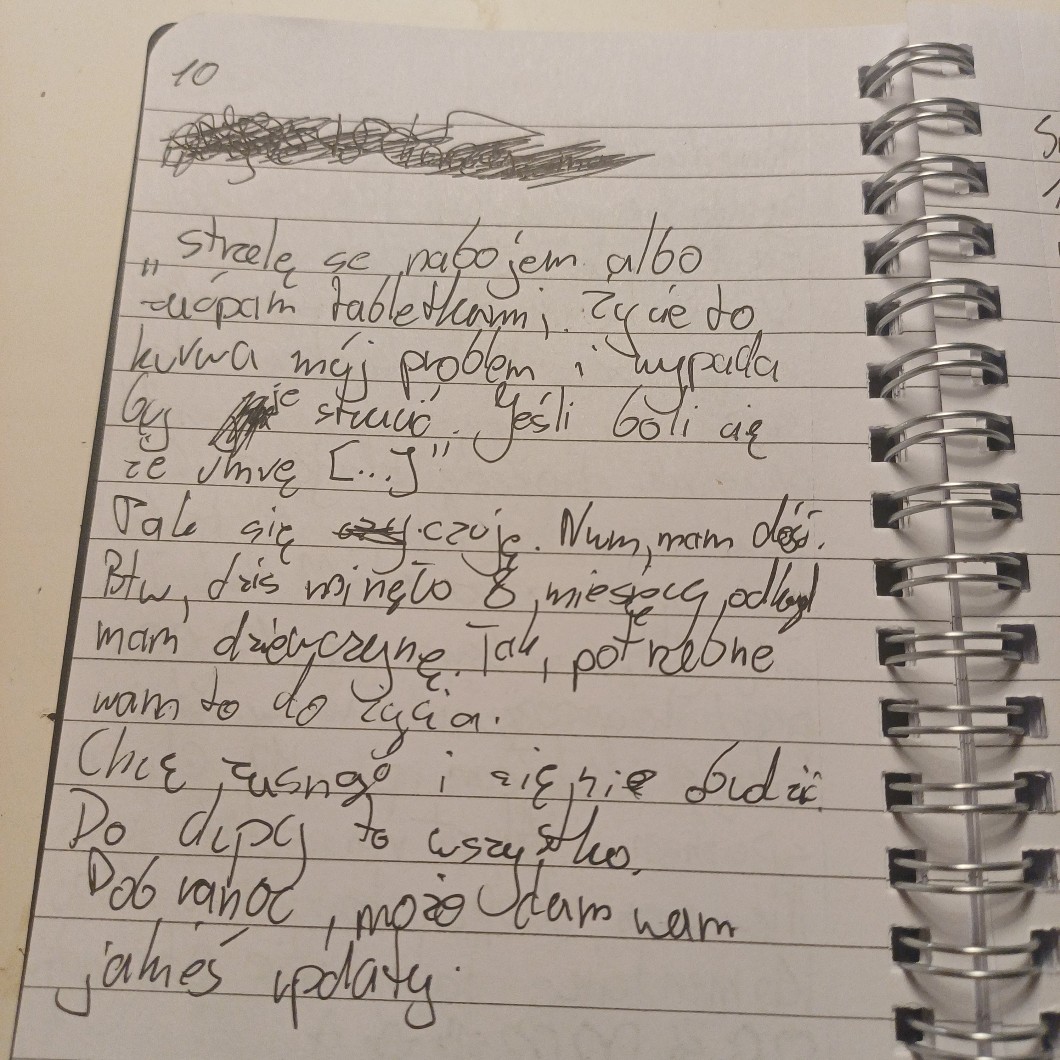 10
„strzelę se nabojem albo
tabletkami. Życie to
kurwa mój problem i wypada
by je stracić. Jeśli boli cię
że umrę [...]"
Tak się czuję. Num, mam dość.
Btw, dziś minęło 8 miesięcy odkąd
mam dziewczynę. Tak, potrzebne
wam to do życia.
Chcę zasnąć i się nie obudzić.
Do dupy to wszystko.
Dobranoc, może dam wam
jakieś updaty.